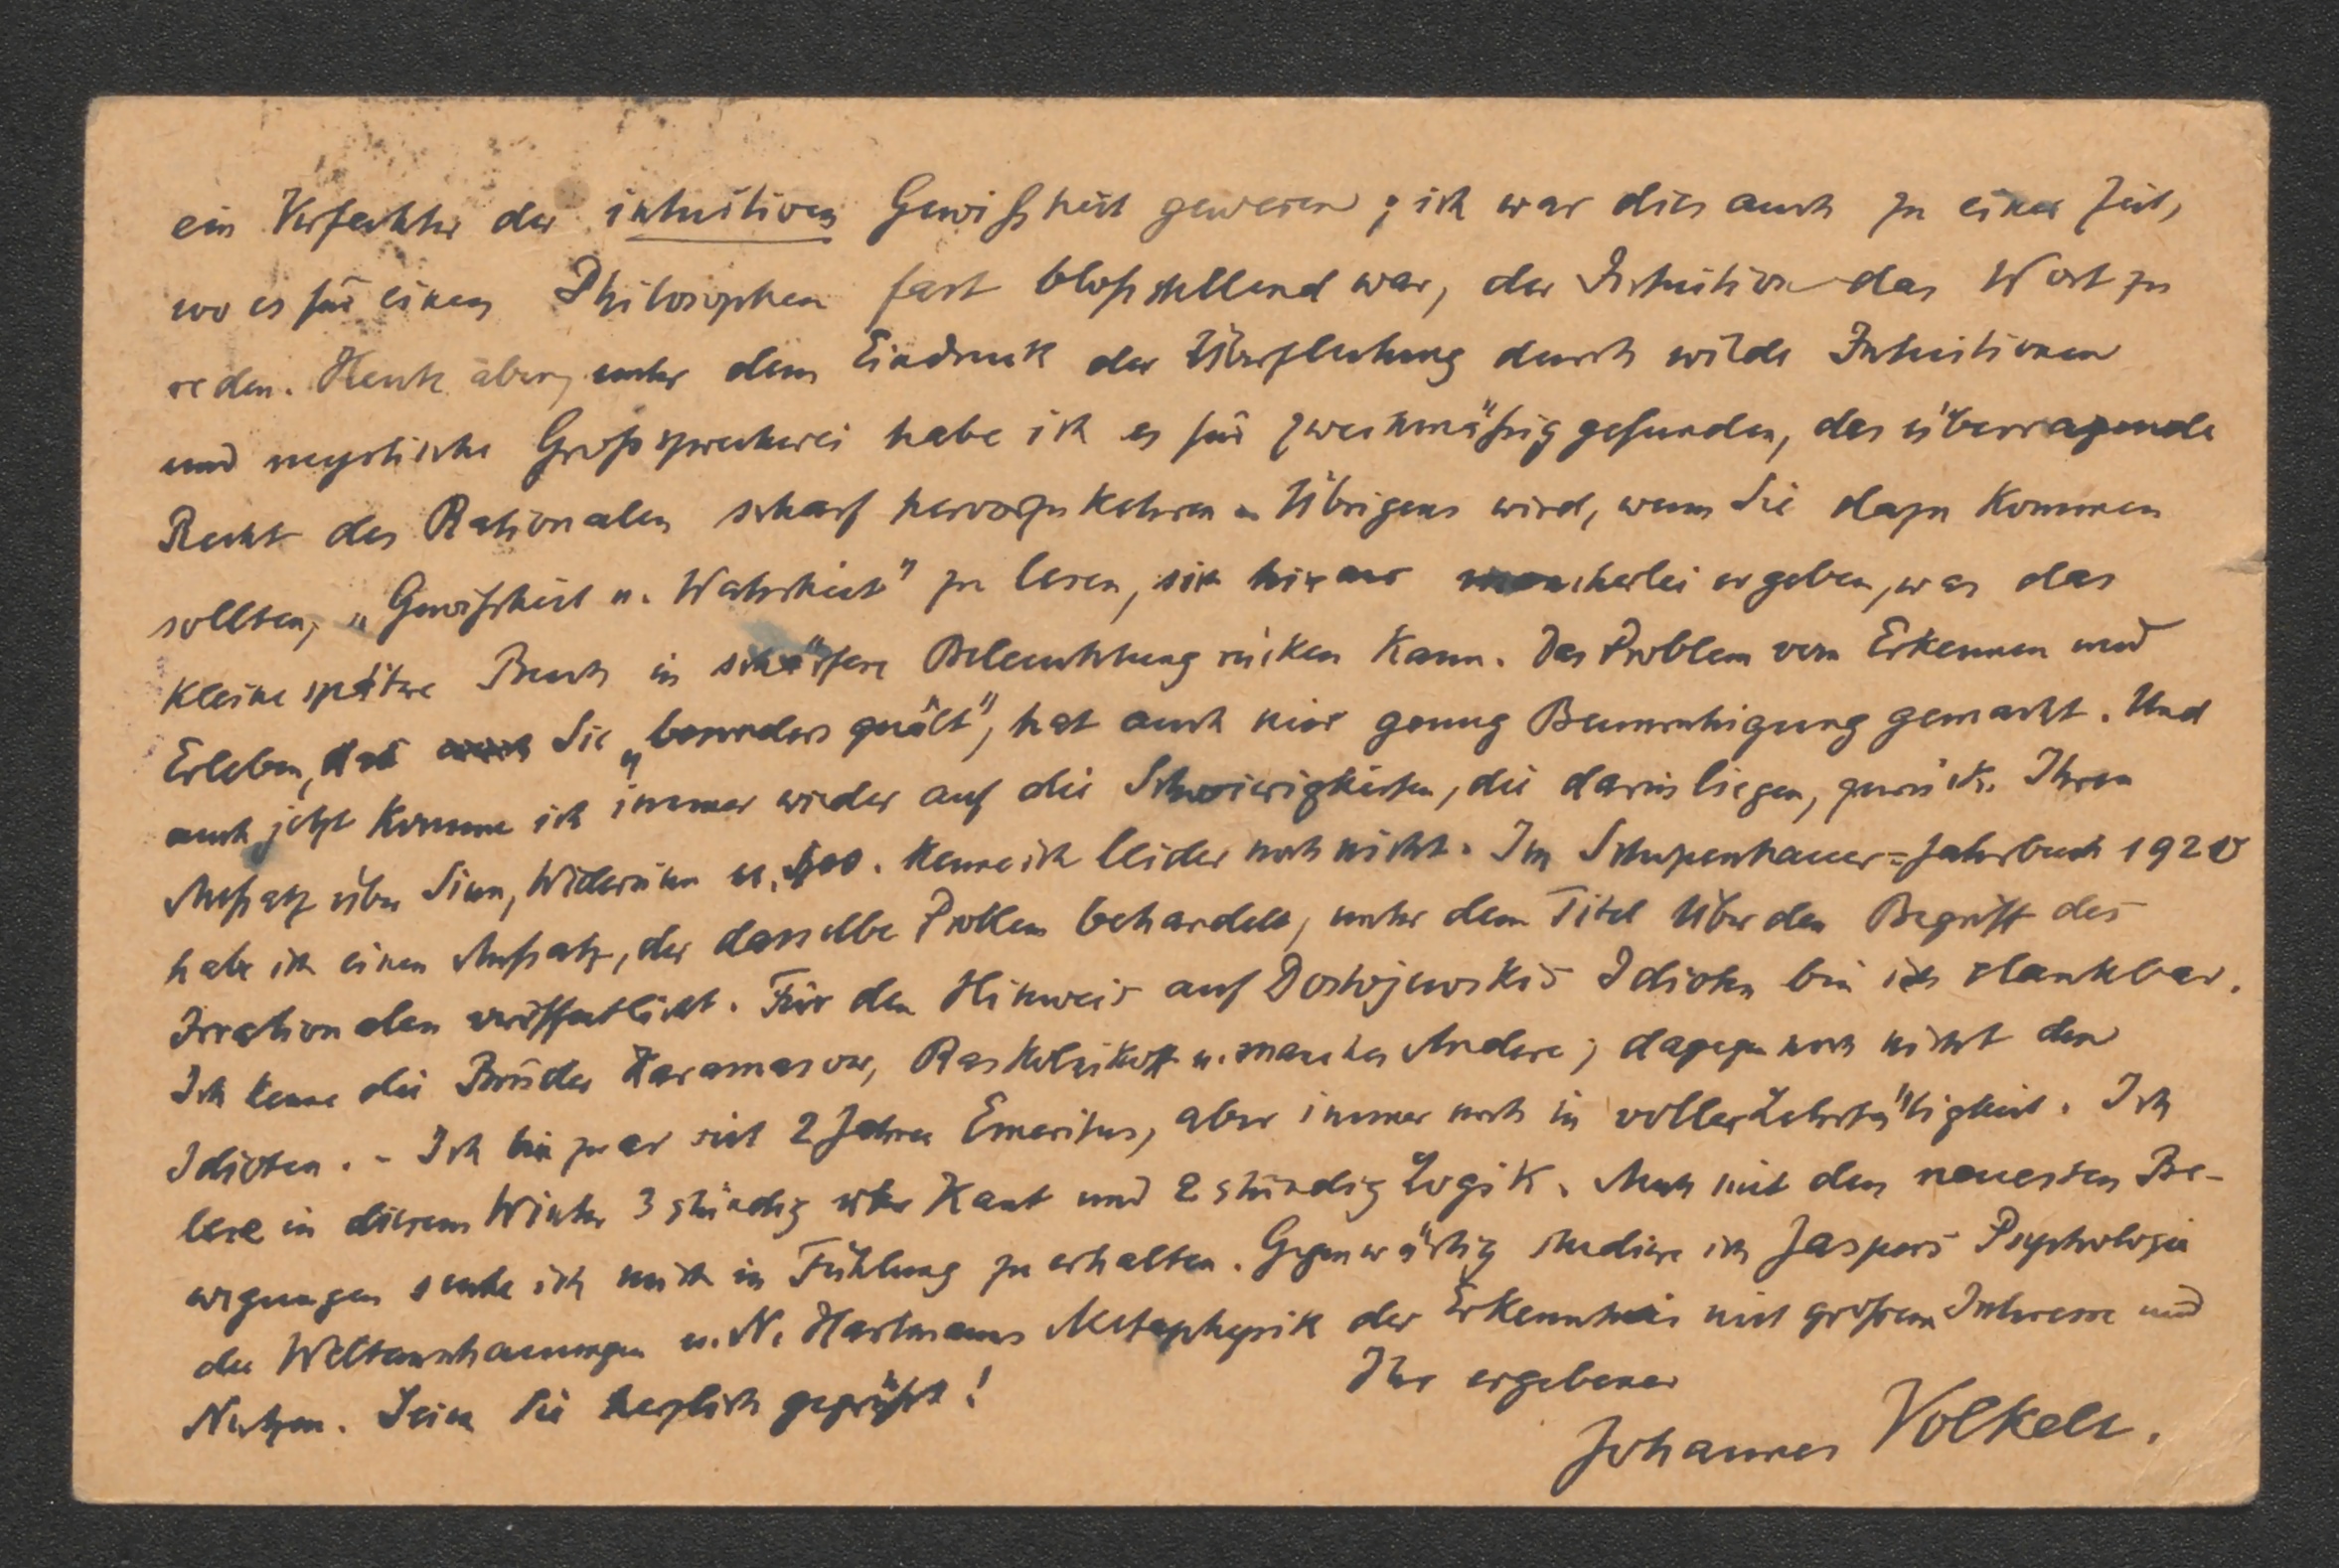 ein Verfechter der intuitiven Gewißheit gewesen; ich war dies auch zu einer Zeit,
wo es für einen Philosophen fast bloßstellend war, der Intuition das Wort zu
reden. Heute aber, unter dem Eindruck der Überflutung durch wilde Intuitionen
und mystische Großsprecherei habe ich es für zweckmäßig gefunden, das überragende
Recht des Rationalen scharf hervorzukehren. Übrigens wird, wenn Sie dazu kommen
sollten, „Gewißheit u. Wahrheit" zu lesen, sich hieraus mancherlei ergeben, was das
kleine spätere Buch in schärfere Beleuchtung rücken kann. Das Problem vom Erkennen und
Erleben, das Sie „besonders quält", hat auch mir genug Beunruhigung gemacht. Und
auch jetzt komme ich immer wieder auf die Schwierigkeiten, die darin liegen, zurück. Ihren
Aufsatz über Sinn, Widersinn u. kenne ich leider noch nicht. Im Schopenhauer=Jahrbuch 1920
habe ich einen Aufsatz, der dasselbe Problem behandelt, unter dem Titel Über den Begriff des
Irrationalen veröffentlicht. Für den Hinweis auf Dostojewskis Idioten bin ich dankbar.
Ich kenne die Brüder Karamasow, Raskolnikoff u. manches Andere; dagegen noch nicht den
Idioten. - Ich bin zwar seit 2 Jahren Emeritus, aber immer noch in voller Lehrtätigkeit. Ich
lese in diesem Winter 3stündig über Kant und 2stündig Logik. Auch mit den neuesten Be-
wegungen suche ich mich in Fühlung zu erhalten. Gegenwärtig studiere ich Jaspers Psychologie
der Weltanschauungen u. N. Hartmanns Metaphysik der Erkenntnis mit großem Interesse und
Nutzen. Seien Sie herzlich gegrüßt! Ihr ergebener
Johannes Volkelt.